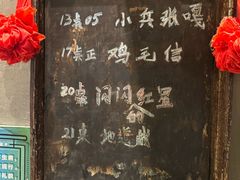 13桌05 小兵张嘎
17桌正 鸡毛信
20桌 闪闪红星
的
21桌 地道战